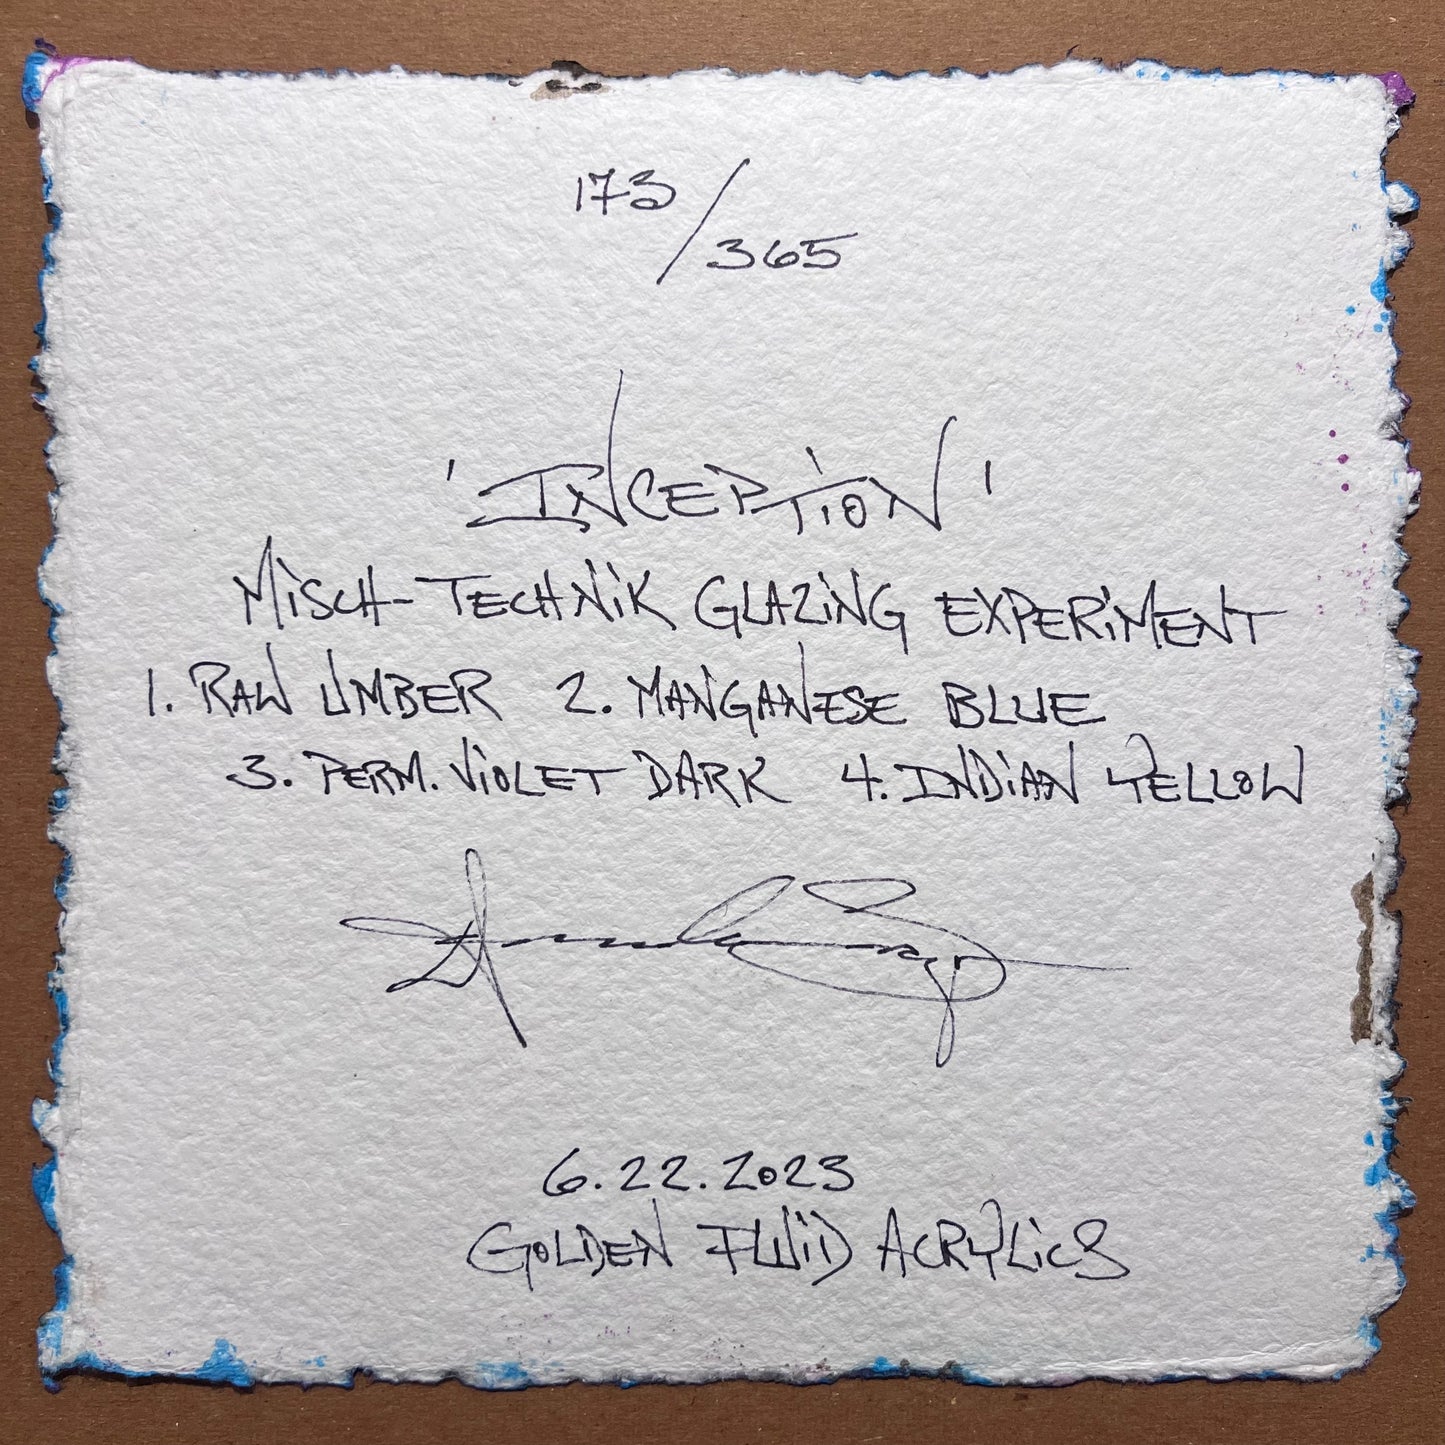 173/365
'INCEPTION'
MISCH-TECHNIK GLAZING EXPERIMENT
1. RAW UMBER 2. MANGANESE BLUE
3. PERM. VIOLET DARK 4. INDIAN YELLOW
6.22.2023
GOLDEN FLUID ACRYLICS